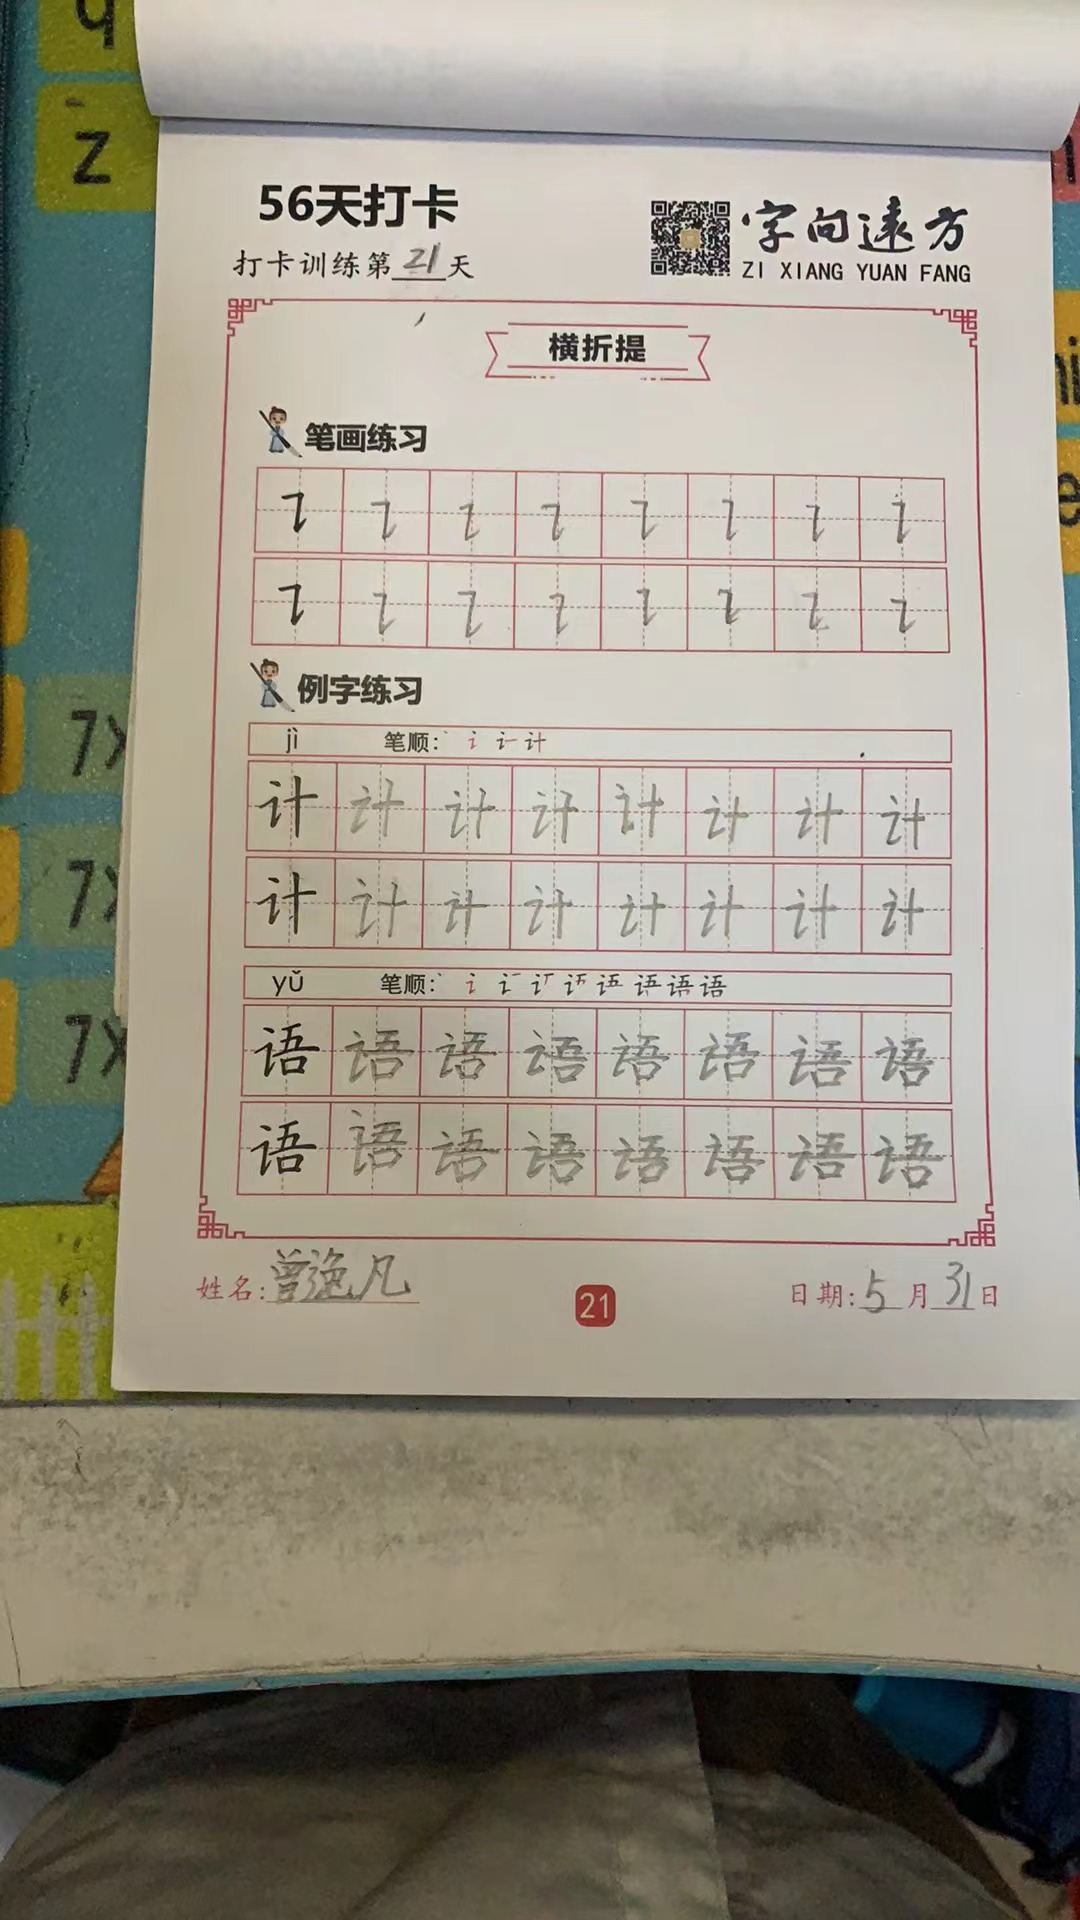 q
z
7×
7×
7×
56天打卡
打卡训练第21天
字向遠方
ZI XIANG YUAN FANG
横折提
笔画练习
例字练习
jì 笔顺:
计 计 计 计 计 计 计 计
计 计 计 计 计 计 计 计
yǔ 笔顺: 语
语 语 语 语 语 语 语 语
语 语 语 语 语 语 语 语
姓名:曾逸凡
21
日期:5月31日